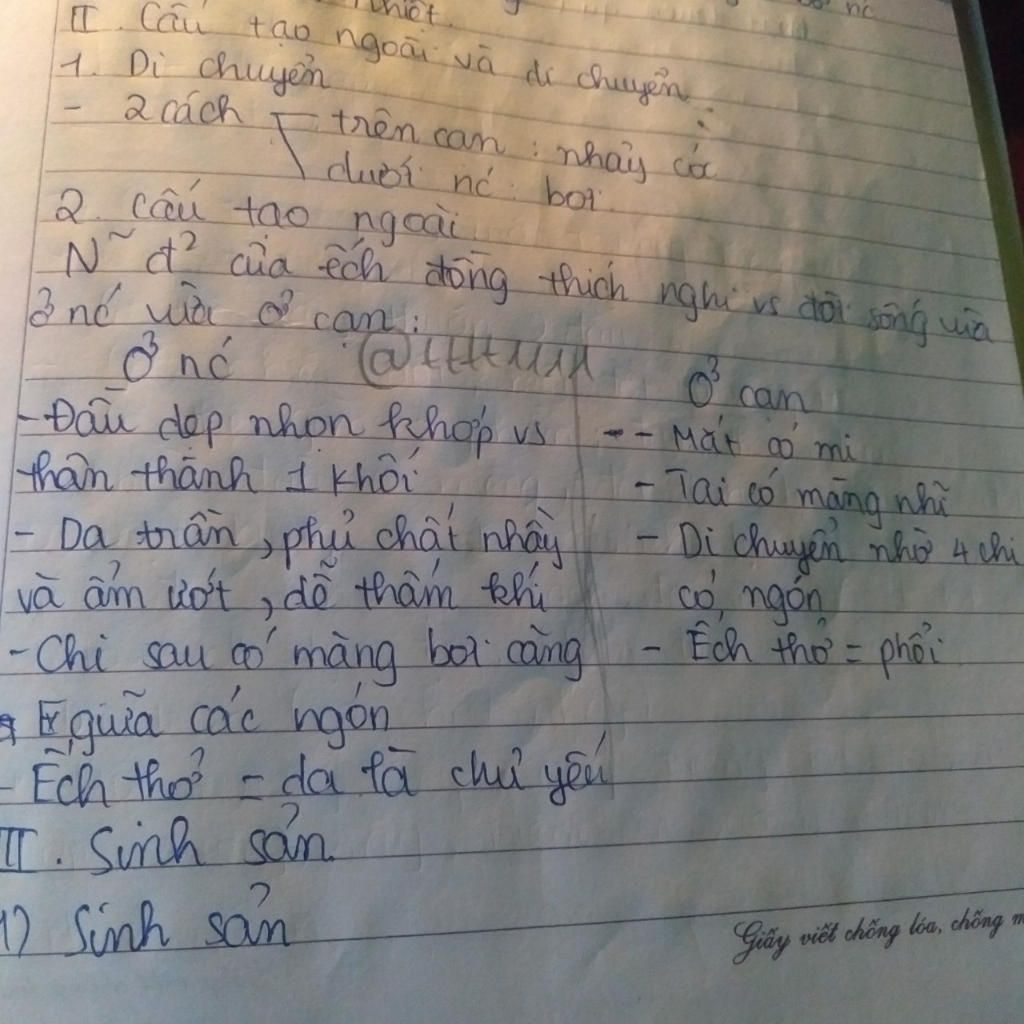 nhiệt.
nc
II. Cấu tạo ngoài và di chuyển:
1. Di chuyển
- 2 cách trên cạn: nhảy cóc
dưới nć: bơi
2. Cấu tạo ngoài
N~ đ² của ếch đồng thích nghi vs đời sống vừa
ở nć vừa ở cạn:
Ở nć
- Đầu dẹp nhọn khớp vs
thân thành 1 khối
- Da trần, phủ chất nhầy
và ẩm ướt, dễ thấm khí
- Chi sau có màng bơi căng
giữa các ngón
- Ếch thở = da là chủ yếu
Ở cạn
- - Mắt có mi
- Tai có màng nhĩ
- Di chuyển nhờ 4 chi
có ngón
- Ếch thở = phổi
II. Sinh sản
1) Sinh sản
Giấy viết chống lóa, chống